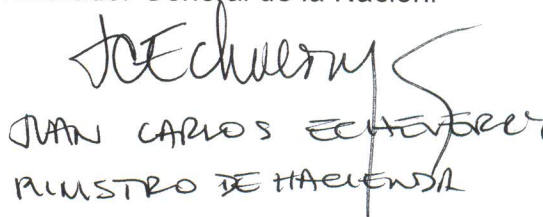 General de la Nación.
JCEcheverry
JUAN CARLOS ECHEVERRY
MINISTRO DE HACIENDA